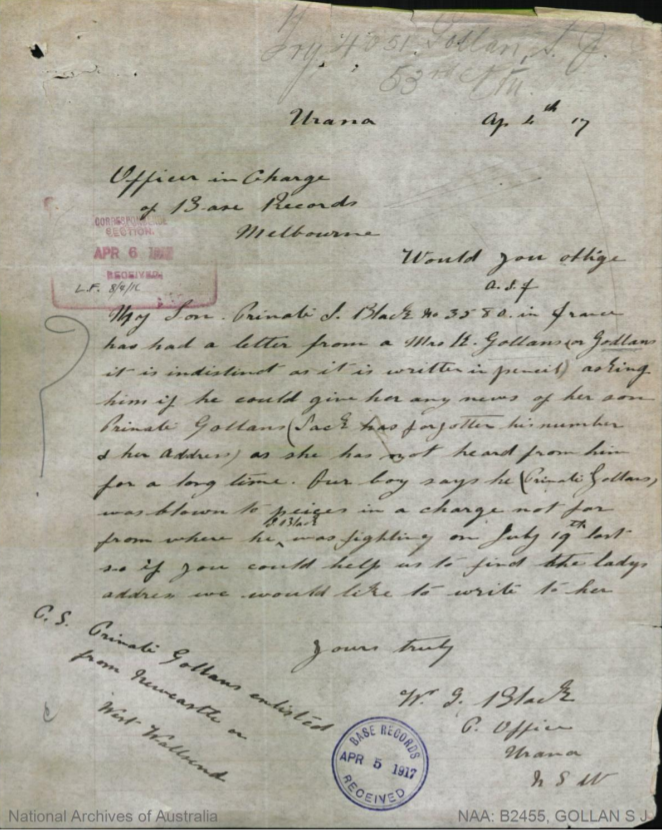 Try 4051 Gollan, S. J.
53rd Btn.
Urana Ap 4th 17
Officer in Charge
of Base Records
Melbourne
CORRESPONDENCE
SECTION.
APR 6 1917
RECEIVED.
L.F. 8/9/16
Would you oblige
A.I.F
My Son. Private J. Black No 3558A. in france
has had a letter from a Mrs H. Gollans (or Godlans
it is indistinct as it is written in pencil) asking
him if he could give her any news of her son
Private Gollans (Jack has forgotten his number
& her address) as she has not heard from him
for a long time. Our boy says he (Private Gollans)
was blown to peices in a charge not far
from where he, was fighting on July 19th last
P Black
so if you could help us to find the ladys
address we would like to write to her
yours truly
W. J. Black
P. Office
Urana
N S W
P. S. Private Gollans enlisted
from Newcastle or
West Wallsend
BASE RECORDS
APR 5 1917
RECEIVED
National Archives of Australia
NAA: B2455, GOLLAN S J